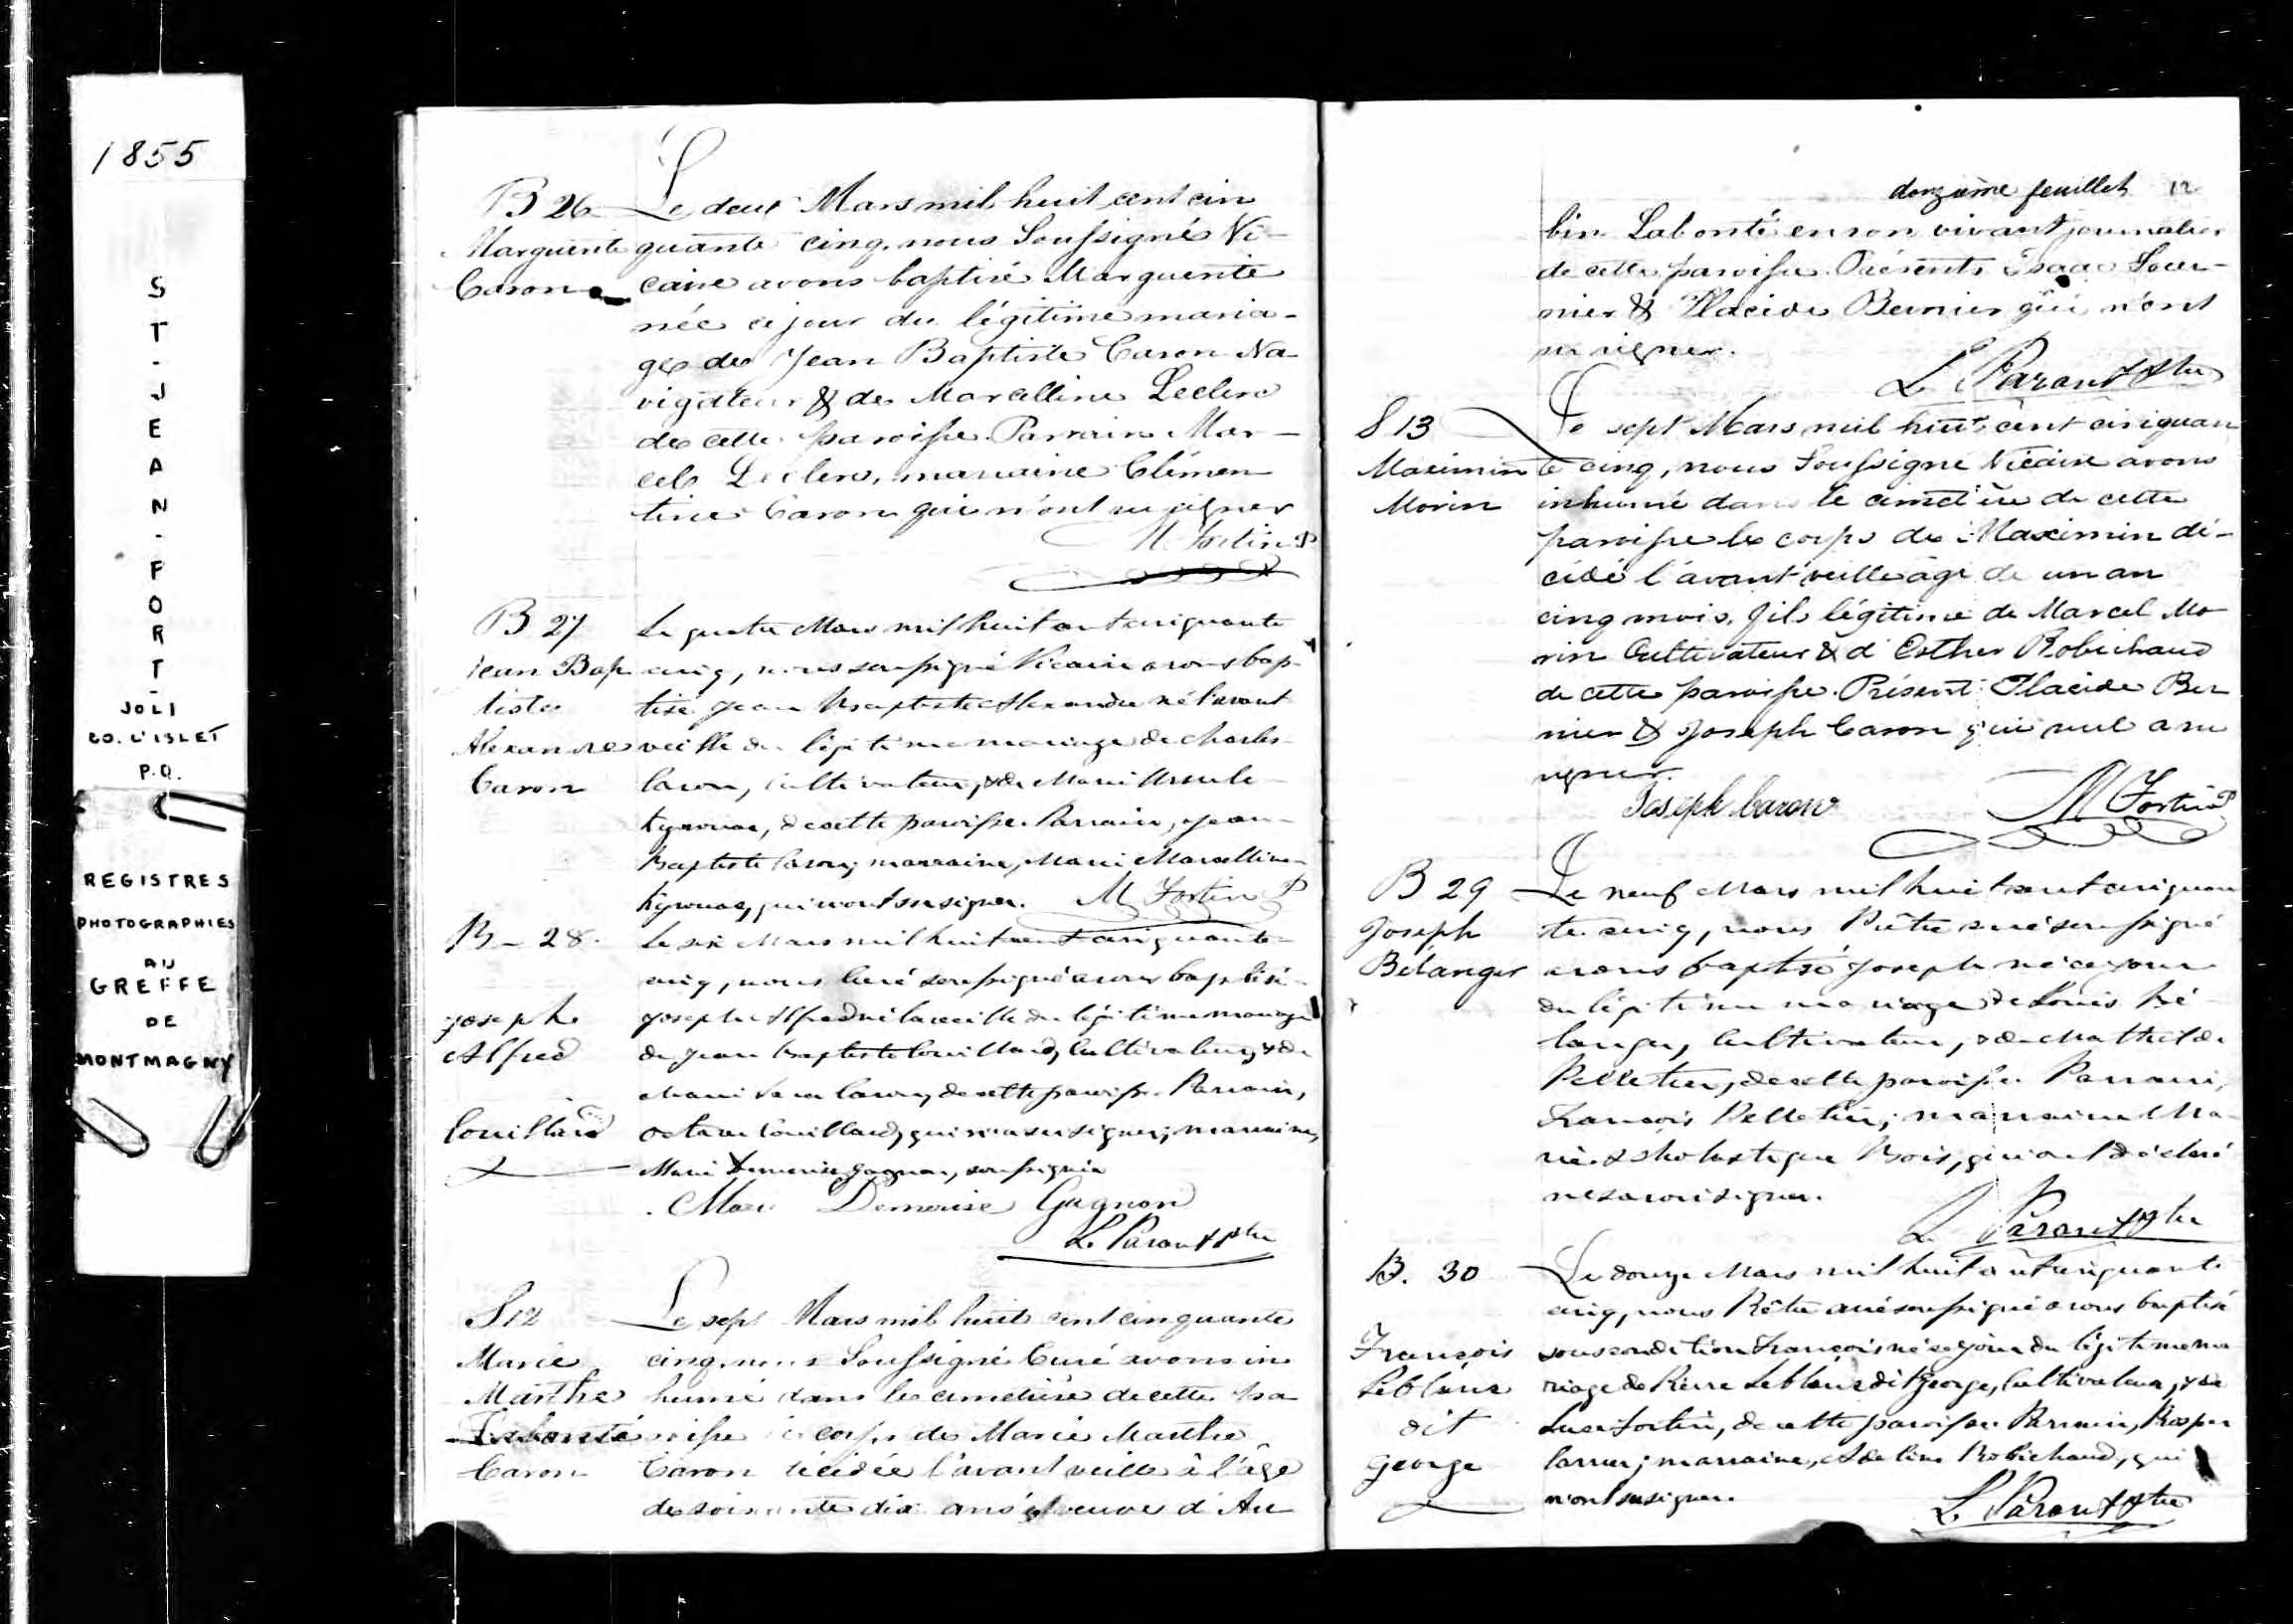 1855
ST-JEAN-PORT-
JOLI
CO. L'ISLET
P.Q.
REGISTRES
PHOTOGRAPHIES
AU
GREFFE
DE
MONTMAGNY
B 26
Marguerite
Caron
Le deux Mars mil huit cent cin
quante cinq, nous Soussigné Vi-
caire avons baptisé Marguerite
née ce jour du légitime maria-
ge de Jean Baptiste Caron Na-
vigateur & de Marcelline Leclerc
de cette paroisse. Parrain Mar-
cel Leclerc, marraine Clémen
tine Caron qui n'ont su signer
M Fortin P
B 27
Jean Bap
tiste
Alexandre
Caron
Le quatre Mars mil huit cent cinquante
cinq, nous soussigné Vicaire avons bap-
tisé Jean Baptiste Alexandre né l'avant
veille du légitime mariage de Charles
Caron, Cultivateur, & de Marie Ursule
Kyrouac, de cette paroisse. Parrain, Jean-
Baptiste Caron; marraine, Marie Marcelline
Kyrouac, qui n'ont su signer. M Fortin P
B - 28.
Joseph
Alfred
Couillard
Le six Mars mil huit cent cinquante-
cinq, nous Curé soussigné avons baptisé
Joseph Alfred né la veille du légitime mariage
de Jean Baptiste Couillard, Cultivateur, & de
Marie Caron, de cette paroisse. Parrain,
Octave Couillard, qui n'a su signer; marraine,
Marie Demerise Gagnon, soussignée
Marie Demerise Gagnon
L. Parant Ptre
S 12
Marie
Marthe
Labonté
Caron
Le sept Mars mil huit cent cinquante
cinq, nous Soussigné Curé avons in
humé dans le cimetière de cette pa
roisse le corps de Marie Marthe
Caron décédée l'avant veille à l'âge
de soixante dix ans veuve d'Au
douzième feuillet 12
bin Labonté en son vivant journalier
de cette paroisse. Présents Isaac Four-
nier & Placide Bernier qui n'ont
su signer.
L. Parant Ptre
S 13
Maximin
Morin
Le sept Mars mil huit cent cinquan
te cinq, nous Soussigné Vicaire avons
inhumé dans le cimetière de cette
paroisse le corps de Maximin dé-
cédé l'avant veille âgé de un an
cinq mois, fils légitime de Marcel Mo
rin Cultivateur & d'Esther Robichaud
de cette paroisse. Présent: Placide Ber
nier & Joseph Caron qui seul a su
signer.
Joseph Caron
M Fortin P
B 29
Joseph
Bélanger
Le neuf Mars mil huit cent cinquan
te cinq, nous Prêtre curé soussigné
avons baptisé Joseph né ce jour
du légitime mariage de Louis Bé-
langer, Cultivateur, & de Mathilde
Pelletier, de cette paroisse. Parrain,
François Pelletier; marraine Ma-
rie Scholastique Bois, qui ont déclaré
ne savoir signer.
L. Parant Ptre
B. 30
François
Leblanc
dit
George
Le douze Mars mil huit cent cinquante
cinq, nous Prêtre curé soussigné avons baptisé
sous condition François né ce jour du légitime ma
riage de Pierre Leblanc dit George, Cultivateur, & de
Luce Fortin, de cette paroisse. Parrain, Prosper
Caron; marraine, Adeline Robichaud, qui
n'ont su signer.
L. Parant Ptre